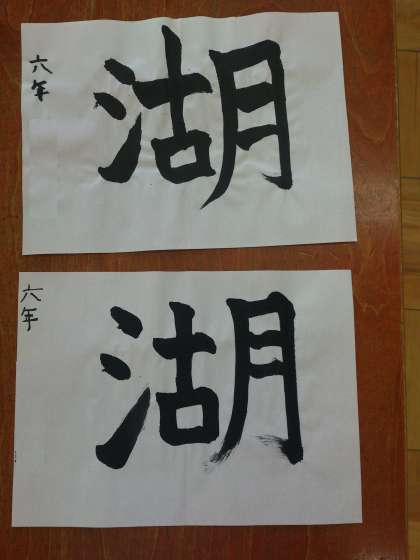 湖
六年
湖
六年